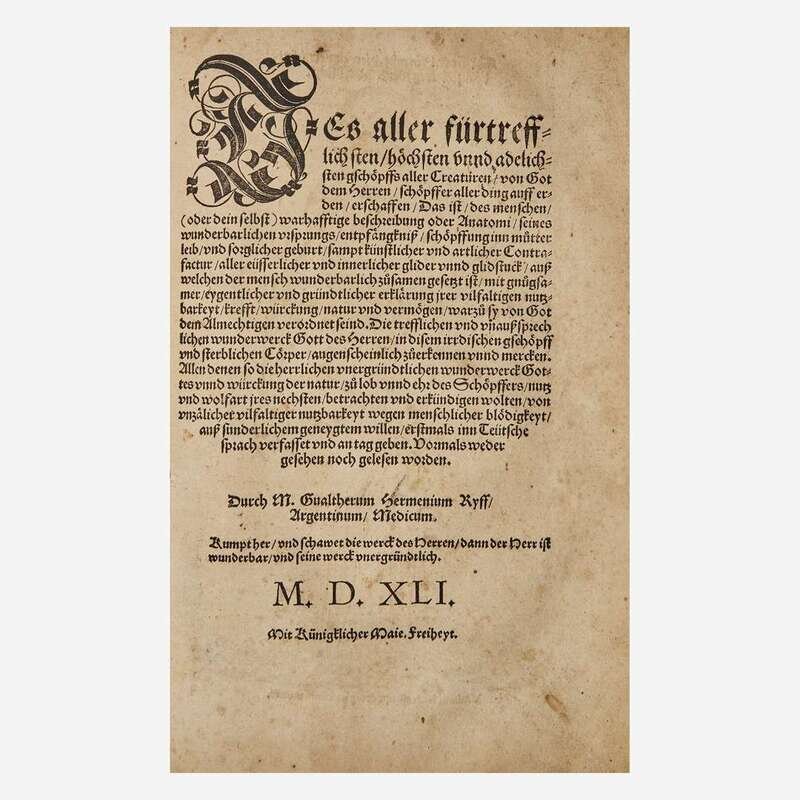 DEs aller fürtreff-
lichsten/höchsten vnnd adelich-
sten gschöpffs aller Creatüren/von Got
dem Herren/schöpffer aller ding auff er-
den/erschaffen/Das ist/des menschen/
(oder dein selbst) warhafftige beschreibung oder Anatomi/seines
wunderbarlichen vrsprungs/entpfängkniß/schöpffung inn mütter
leib/vnd sorglicher geburt/sampt künstlicher vnd artlicher Contra-
factur/aller eüsserlicher vnd innerlicher glider vnnd glidstuck/auß
welchen der mensch wunderbarlich zůsamen gesetzt ist/mit gnůgsa-
mer/eygentlicher vnd gründtlicher erklärung jrer vilfaltigen nutz-
barkeyt/krefft/würckung/natur vnd vermögen/warzů sy von Got
dem Almechtigen verordnet seind. Die trefflichen vnd vnaußsprech
lichen wunderwerck Gott des Herren/in disem irrdischen gschöpff
vnd sterblichen Cörper/augenscheinlich zůerkennen vnnd mercken.
Allen denen so die herrlichen vnergründtlichen wunderwerck Got-
tes vnnd würckung der natur/zů lob vnnd ehr des Schöpffers/nutz
vnd wolfart jres nechsten/betrachten vnd erkündigen wolten/von
vnzälicher vilfaltiger nutzbarkeyt wegen menschlicher blödigkeyt/
auß sunderlichem geneygtem willen/erstmals inn Teütsche
sprach verfasset vnd an tag geben. Vormals weder
gesehen noch gelesen worden.
Durch M. Gualtherum Hermenium Ryff/
Argentinum/Medicum.
Kumpt her/vnd schawet die werck des Herren/dann der Herr ist
wunderbar/vnd seine werck vnergründtlich.
M. D. XLI.
Mit Künigklicher Maie. Freiheyt.